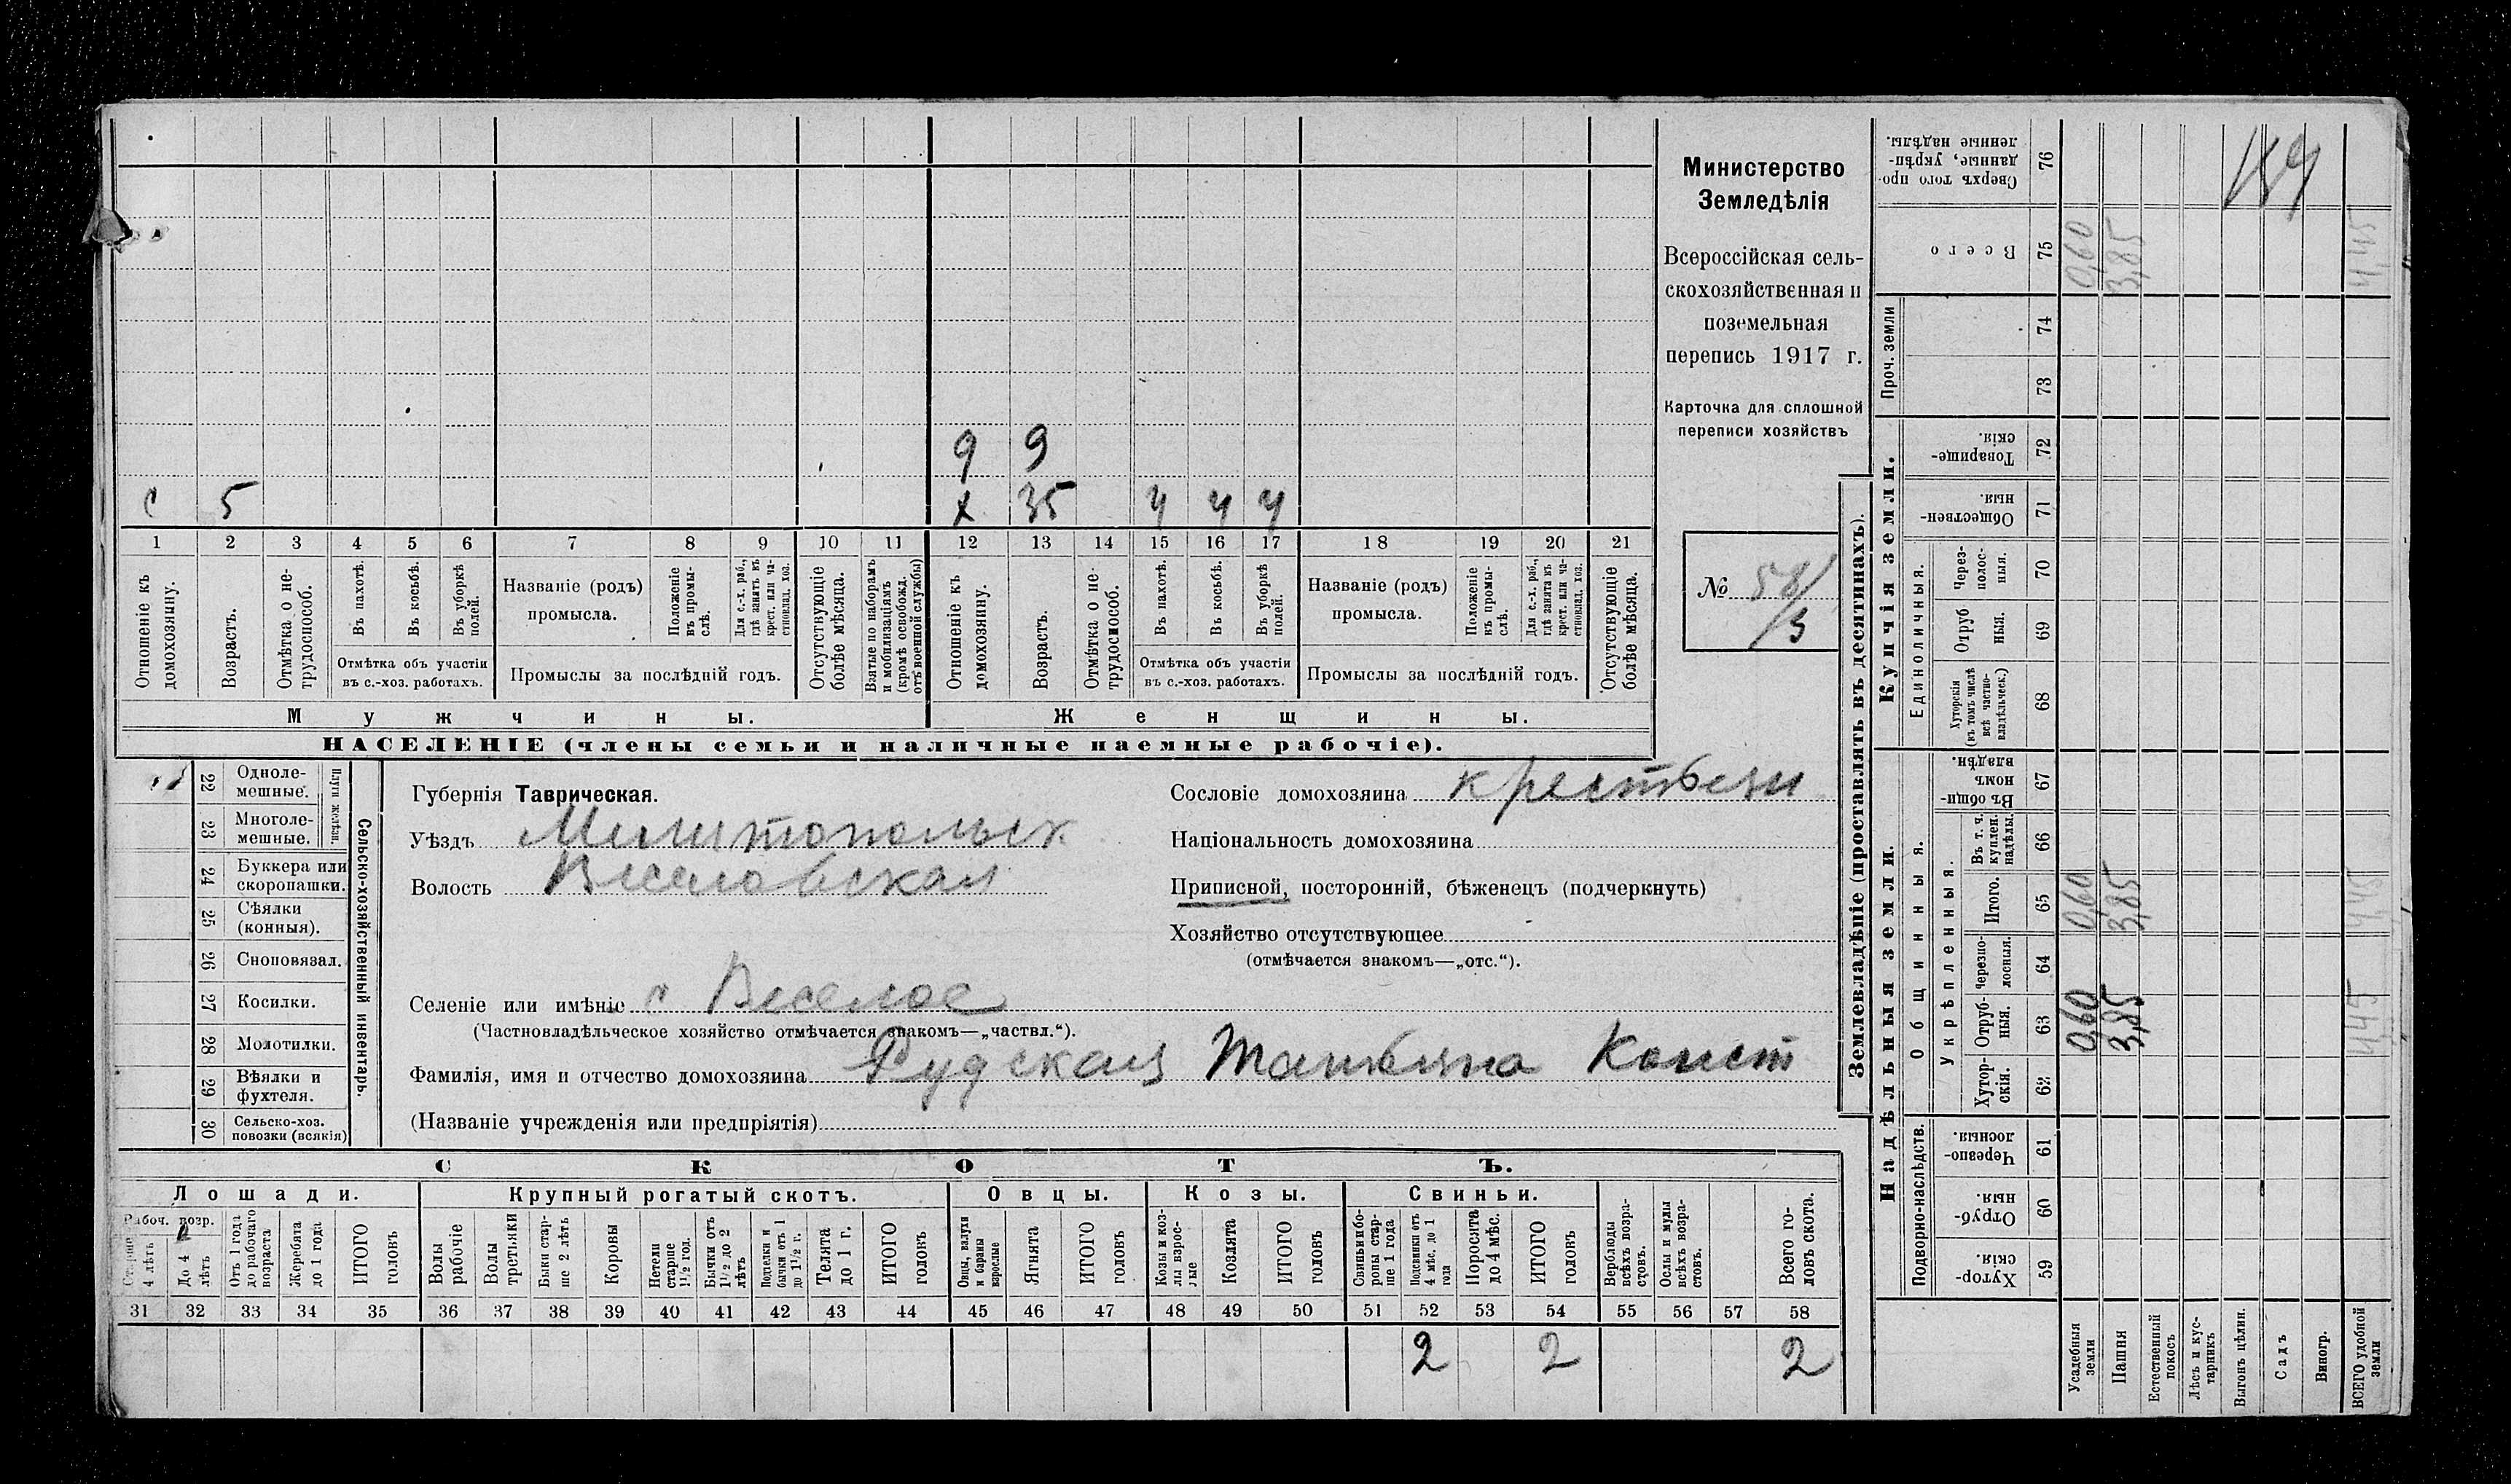 9 9
с 5 х 35 ч ч ч
1 2 3 4 5 6 7 8 9 10 11 12 13 14 15 16 17 18 19 20 21
Отношеніе къ домохозяину.
Возрастъ.
Отмѣтка о не-
трудоспособ.
Въ пахотѣ.
Въ косьбѣ.
Въ уборкѣ
полей.
Отмѣтка объ участіи
въ с.-хоз. работахъ.
Названіе (родъ)
промысла.
Положеніе
въ промы-
слѣ.
Для с.-х. раб.,
гдѣ занятъ въ
крест. или ча-
стновлад. хоз.
Промыслы за послѣдній годъ.
Отсутствующіе
болѣе мѣсяца.
Взятые по наборамъ
и мобилизаціямъ
(кромѣ освобожд.
отъ военной службы)
Отношеніе къ
домохозяину.
Возрастъ.
Отмѣтка о не-
трудоспособ.
Въ пахотѣ.
Въ косьбѣ.
Въ уборкѣ
полей.
Отмѣтка объ участіи
въ с.-хоз. работахъ.
Названіе (родъ)
промысла.
Положеніе
въ промы-
слѣ.
Для с.-х. раб.,
гдѣ занята въ
крест. или ча-
стновлад. хоз.
Промыслы за послѣдній годъ.
Отсутствующіе
болѣе мѣсяца.
Мужчины.
Женщины.
НАСЕЛЕНІЕ (члены семьи и наличные наемные рабочіе).
Министерство
Земледѣлія
Всероссійская сель-
скохозяйственная и
поземельная
перепись 1917 г.
Карточка для сплошной
переписи хозяйствъ
№ 58/3
22 Одноле-
мешные.
23 Многоле-
мешные.
Плуги желѣзн.
24 Буккера или
скоропашки.
25 Сѣялки
(конныя).
26 Сноповязал.
27 Косилки.
28 Молотилки.
29 Вѣялки и
фухтеля.
30 Сельско-хоз.
повозки (всякія)
Сельско-хозяйственный инвентарь.
Губернія Таврическая.
Уѣздъ Мелитопольск
Волость Веселовская
Селеніе или имѣніе с Веселое
(Частновладѣльческое хозяйство отмѣчается знакомъ—„частвл.“).
Фамилія, имя и отчество домохозяина Рудская Татьяна Конст
(Названіе учрежденія или предпріятія)
Сословіе домохозяина крестьян
Національность домохозяина
Приписной, посторонній, бѣженецъ (подчеркнуть)
Хозяйство отсутствующее
(отмѣчается знакомъ—„отс.“).
СКОТЪ.
Лошади. Крупный рогатый скотъ. Овцы. Козы. Свиньи.
Рабоч. возр.
Старше
4 лѣтъ
До 4
лѣтъ
Отъ 1 года
до рабочаго
возраста
Жеребята
до 1 года
ИТОГО
головъ
Волы
рабочіе
Волы
третьяки
Быки стар-
ше 2 лѣтъ
Коровы
Нетели
старше
1½ год.
Бычки отъ
1½ до 2
лѣтъ
Подтелки и
бычки отъ 1
до 1½ г.
Телята
до 1 г.
ИТОГО
головъ
Овцы, валухи
и бараны
взрослые
Ягнята
ИТОГО
головъ
Козы и коз-
лы взрос-
лые
Козлята
ИТОГО
головъ
Свиньи и бо-
ровы стар-
ше 1 года
Подсвинки отъ
4 мѣс. до 1
года
Поросята
до 4 мѣс.
ИТОГО
головъ
Верблюды
всѣхъ возра-
стовъ.
Ослы и мулы
всѣхъ возра-
стовъ.
Всего го-
ловъ скота.
31 32 33 34 35 36 37 38 39 40 41 42 43 44 45 46 47 48 49 50 51 52 53 54 55 56 57 58
2 2 2
Землевладѣніе (проставлять въ десятинахъ).
Надѣльныя земли.
Купчія земли.
Проч. земли
Сверхъ того про-
данные, укрѣп-
ленные надѣлы.
76
Всего
75
74
73
Товарище-
скія.
72
Обществен-
ныя.
71
Единоличныя.
Через-
полос-
ныя.
70
Отруб
ныя.
69
Хуторскія
(въ томъ числѣ
всѣ частно-
владѣльческ.)
68
Въ общи-
номъ
владѣн.
67
Общинныя.
Укрѣпленныя.
Въ т. ч.
куплен.
надѣлы.
66
Итого.
65
Черезпо-
лосныя.
64
Отруб-
ныя.
63
Хутор-
скія.
62
Подворно-наслѣдств.
Черезпо-
лосныя.
61
Отруб-
ныя.
60
Хутор-
скія.
59
Усадебныя
земли
Пашня
Естественный
покосъ
Лѣсъ и кус-
тарникъ
Выгонъ цѣлин.
Садъ
Виногр.
ВСЕГО удобной
земли
0,60 3,85 4,45
0,60 3,85 4,45
0,60 3,85 4,45